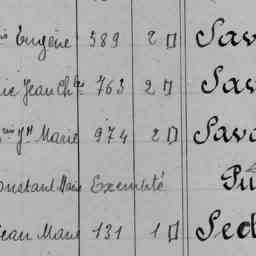 Eugène 389 2 Sav
Jean Ch^les 763 2 Sav
J^h Marie 974 2 Sava
onstant Marie Exempté Pu
Jean Marie 131 1 Sed